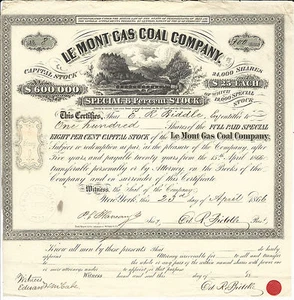 LE MONT GAS COAL COMPANY.
CAPITAL STOCK
$600000
24,000 SHARES
$25 EACH
SPECIAL STOCK
SPECIAL 8 Percent STOCK
This Certifies, that E. R. Biddle is entitled to
One hundred Shares of the FULL PAID SPECIAL
EIGHT PER CENT CAPITAL STOCK of the Le Mont Gas Coal Company,
Subject to redemption at par, at the pleasure of the Company, after
Five years and payable twenty years from the 15th April 1866
transferable personally or by Attorney on the Books of the
Company and on surrender of this Certificate.
Witness the Seal of the Company.
New York, this 28th day of April 1866
Ed. R. Biddle Prest.
Know all men by these presents that do hereby
appoint Attorney irrevocable for to sell and transfer
the whole or any part of the within named shares with power
to appoint for that purpose
Witness hand and seal this day of 18
Witness
Ed R. Biddle